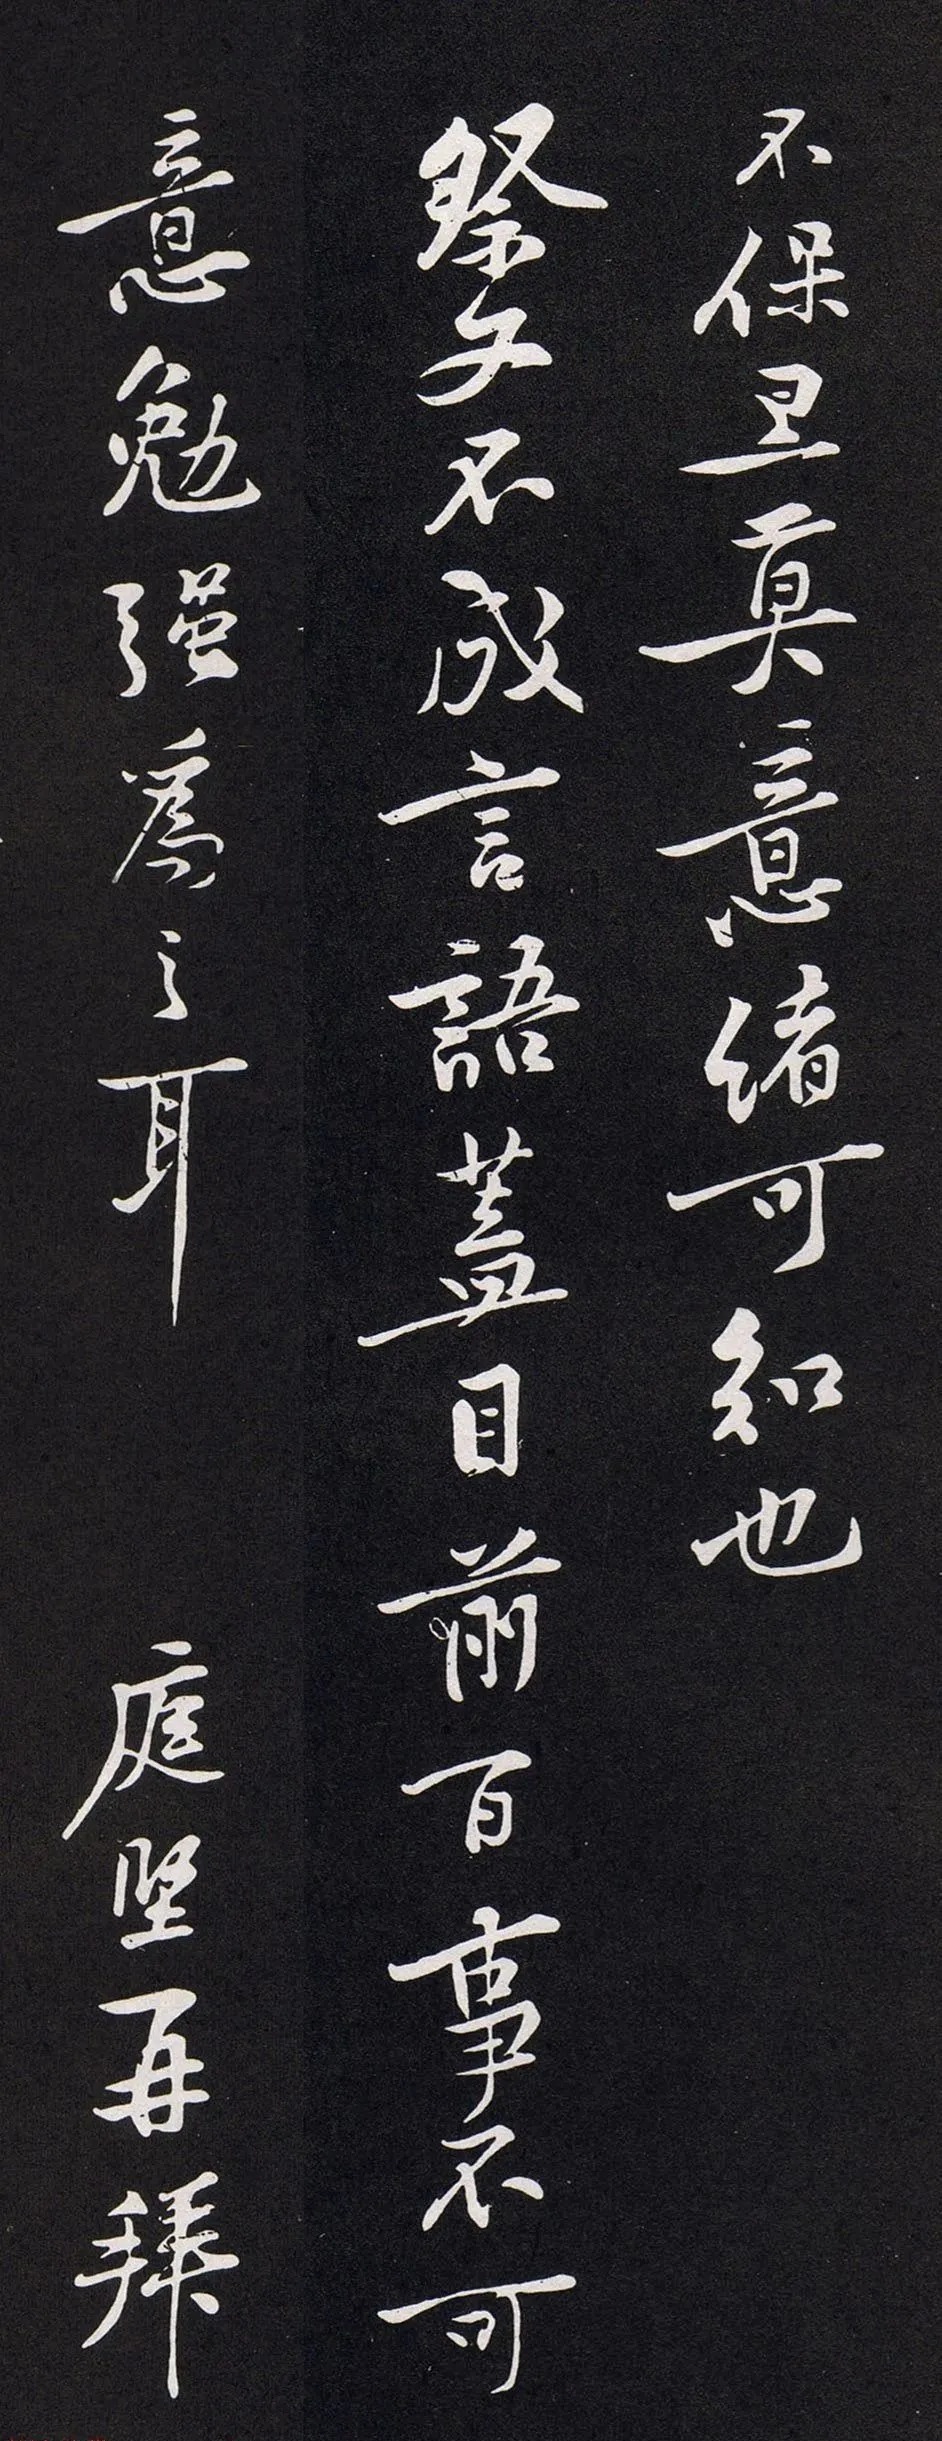 不保旦莫意緒可知也
祭文不成言語蓋目前百事不可
意勉强爲之耳 庭堅再拜